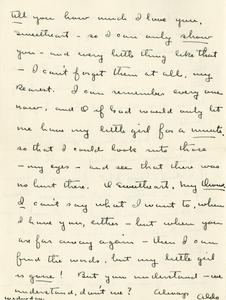 tell you how much I love you,
sweetheart - so I can only show
you - and every little thing like that
- I can't forget them at all, my
dearest. I can remember every one
now, and O if God would only let
me have my little girl for a minute,
so that I could look into those
- my eyes - and see that there was
no hurt there. O sweetheart, my
I can't say what I want to, when
I have you, either - but when you
are far away again - then I can
find the words, but my little girl
is gone! But you understand - we
understand, don't we? Always Aldo
Wednesday